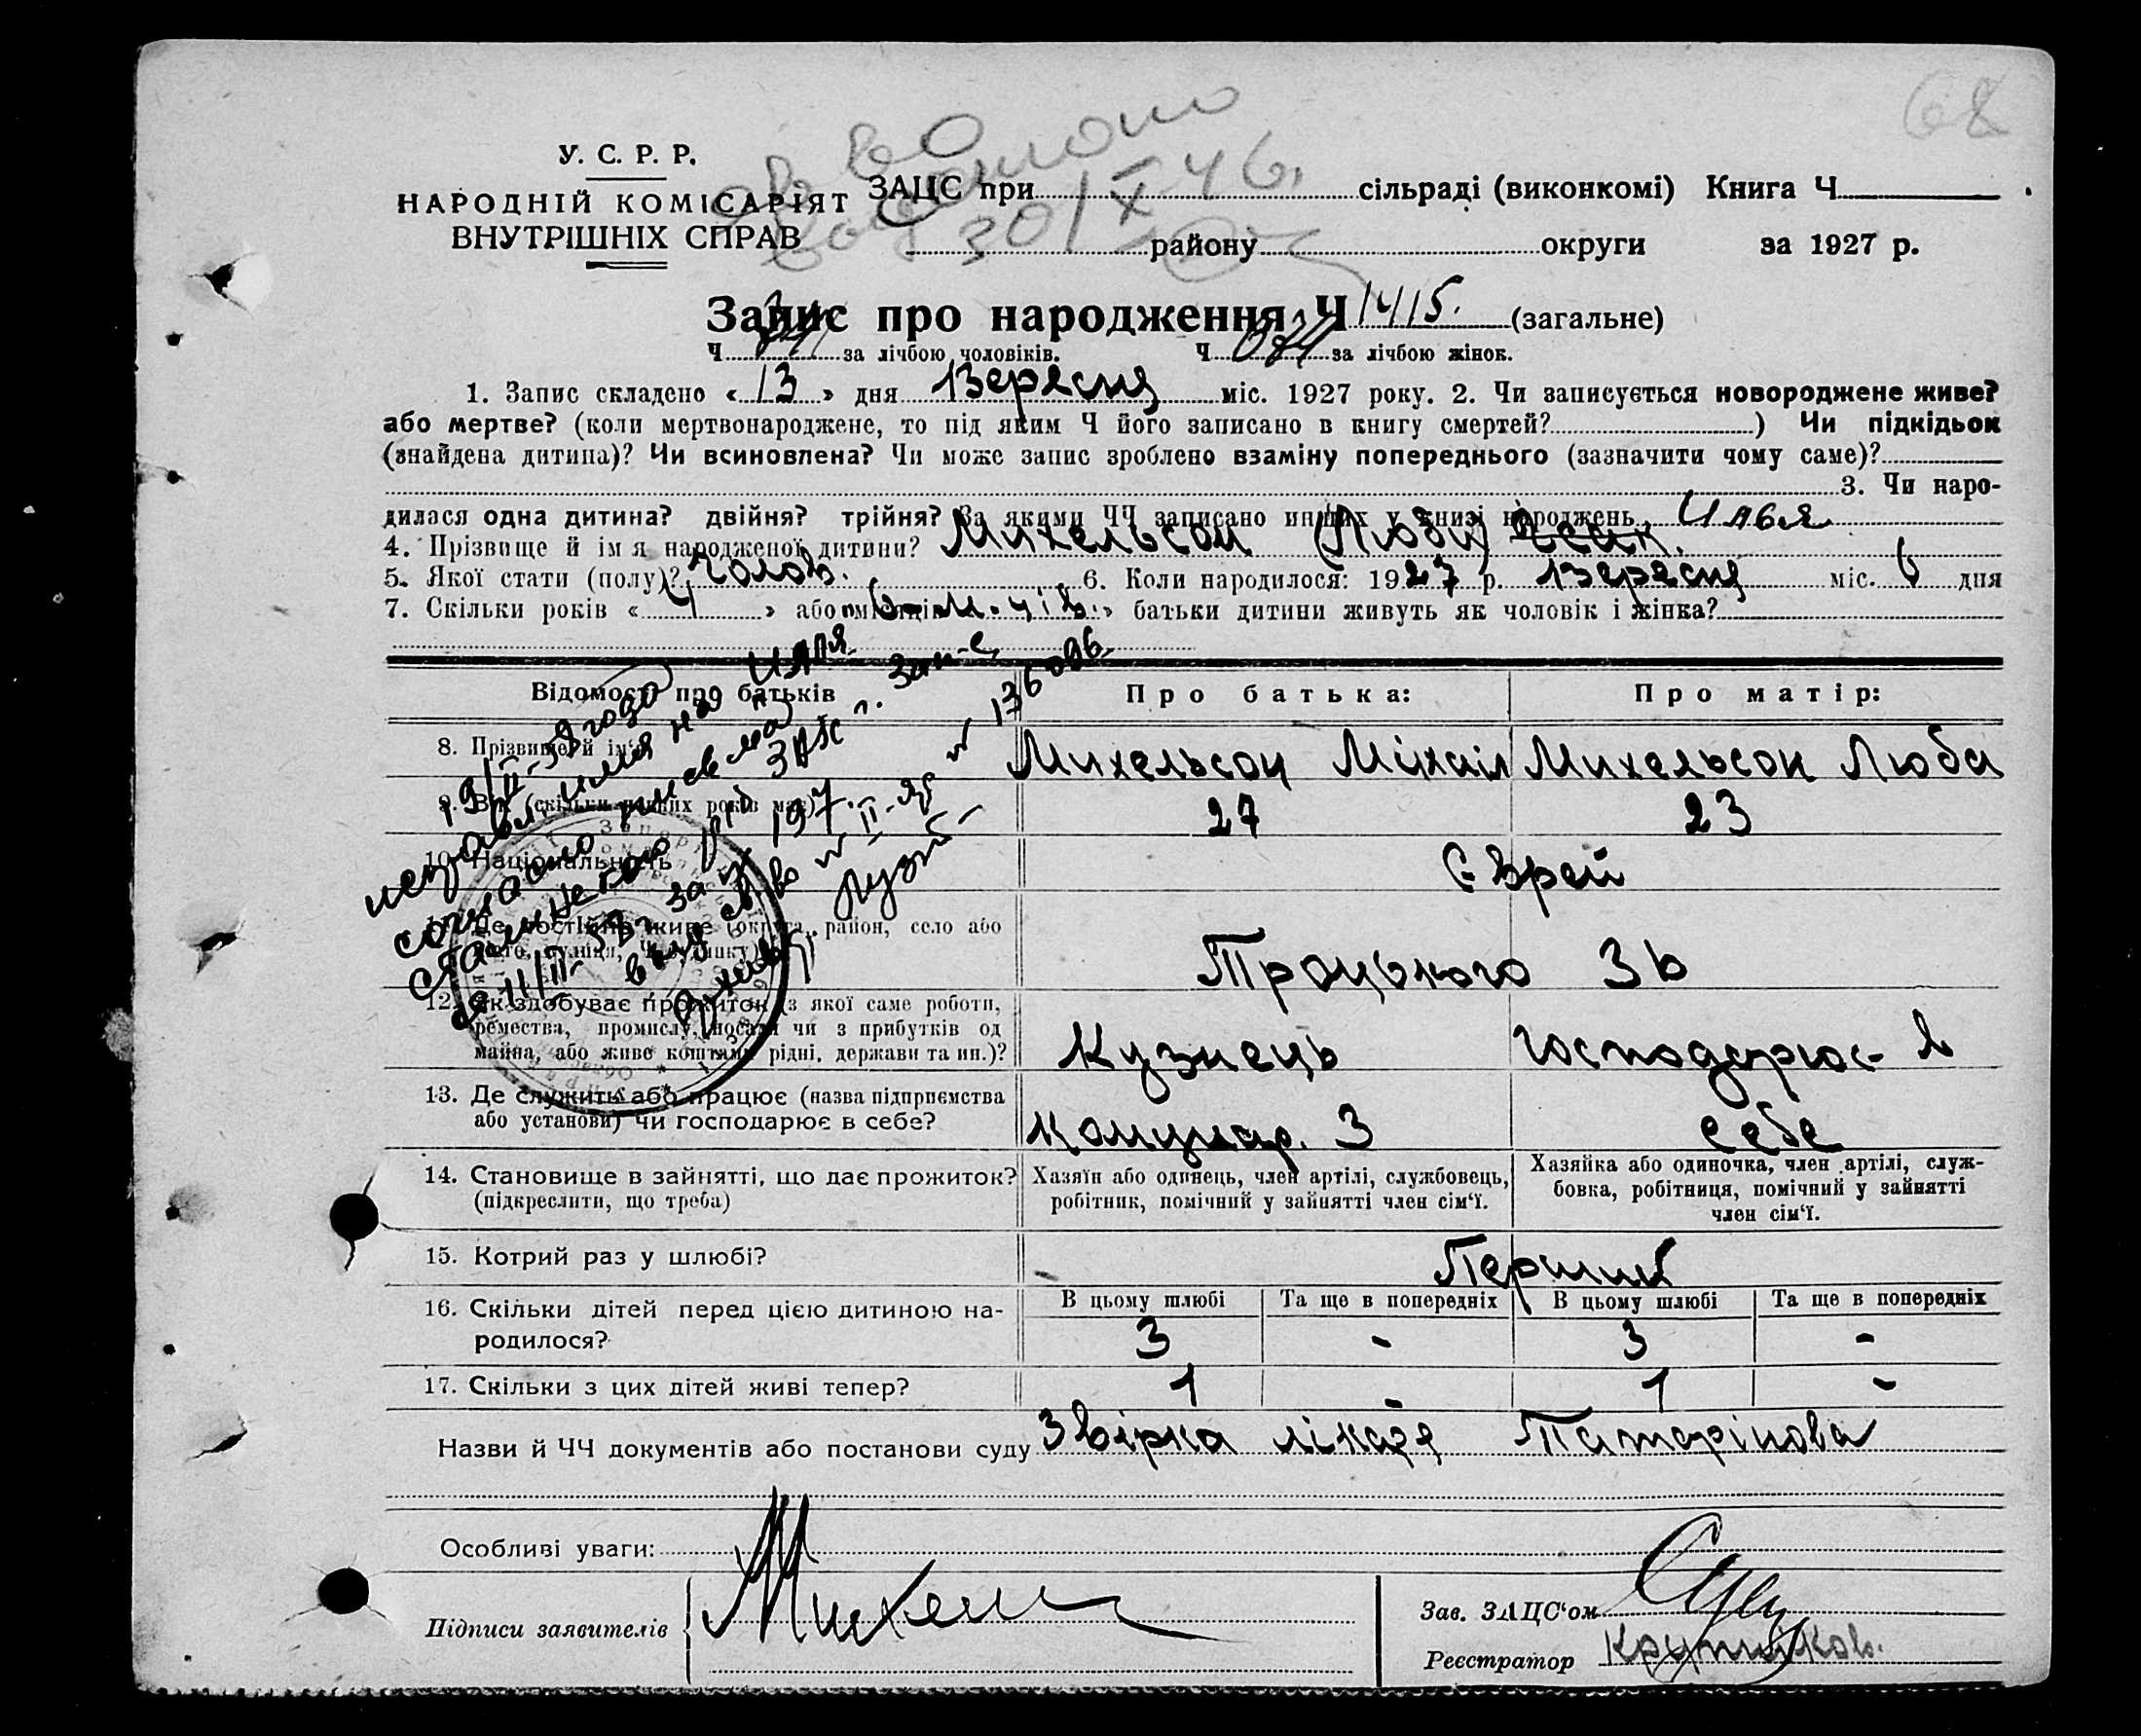 68
У. С. Р. Р.
НАРОДНІЙ КОМІСАРІЯТ
ВНУТРІШНІХ СПРАВ
30/X 46.
ЗАЦС при сільраді (виконкомі) Книга Ч
району округи за 1927 р.
Запис про народження Ч 1415. (загальне)
Ч за лічбою чоловіків. Ч 674 за лічбою жінок.
1. Запис складено «13» дня Вересня міс. 1927 року. 2. Чи записується новороджене живе?
або мертве? (коли мертвонароджене, то під яким Ч його записано в книгу смертей? ) Чи підкідьок
(знайдена дитина)? Чи всиновлена? Чи може запис зроблено взаміну попереднього (зазначити чому саме)?
3. Чи наро-
дилася одна дитина? двійня? трійня? За якими ЧЧ записано инших у книзі народжень Илья
4. Прізвище й ім'я народженої дитини? Михельсон
5. Якої стати (полу)? Голов. 6. Коли народилося: 1927 р. Вересня міс. 6 дня
7. Скільки років «4» або місяців батьки дитини живуть як чоловік і жінка?
Відомості про батьків Про батька: Про матір:
8. Прізвище й ім'я Михельсон Міхаіл Михельсон Люба
9. Вік (скільки повних років має) 27 23
10. Національність Єврей
11. Де постійно живе (округа, район, село або
місто, вулиця, Ч будинку) Троцького 36
12. Як здобуває прожиток (з якої саме роботи,
ремества, промислу, посади чи з прибутків од
майна, або живе коштами рідні, держави та ин.)? Кузнець господарює в
13. Де служить або працює (назва підприємства
або установи) чи господарює в себе? Комунар. 3 себе
14. Становище в зайнятті, що дає прожиток?
(підкреслити, що треба)
Хазяїн або одинець, член артілі, службовець,
робітник, помічний у зайнятті член сім'ї.
Хазяйка або одиночка, член артілі, служ-
бовка, робітниця, помічний у зайнятті
член сім'ї.
15. Котрий раз у шлюбі? Перший
В цьому шлюбі Та ще в попередніх В цьому шлюбі Та ще в попередніх
16. Скільки дітей перед цією дитиною на-
родилося? 3 - 3 -
17. Скільки з цих дітей живі тепер? 1 1 -
Назви й ЧЧ документів або постанови суду Звірка лікаря Татарінова
Особливі уваги:
Підписи заявителів Михел
Зав. ЗАЦС'ом
Реєстратор